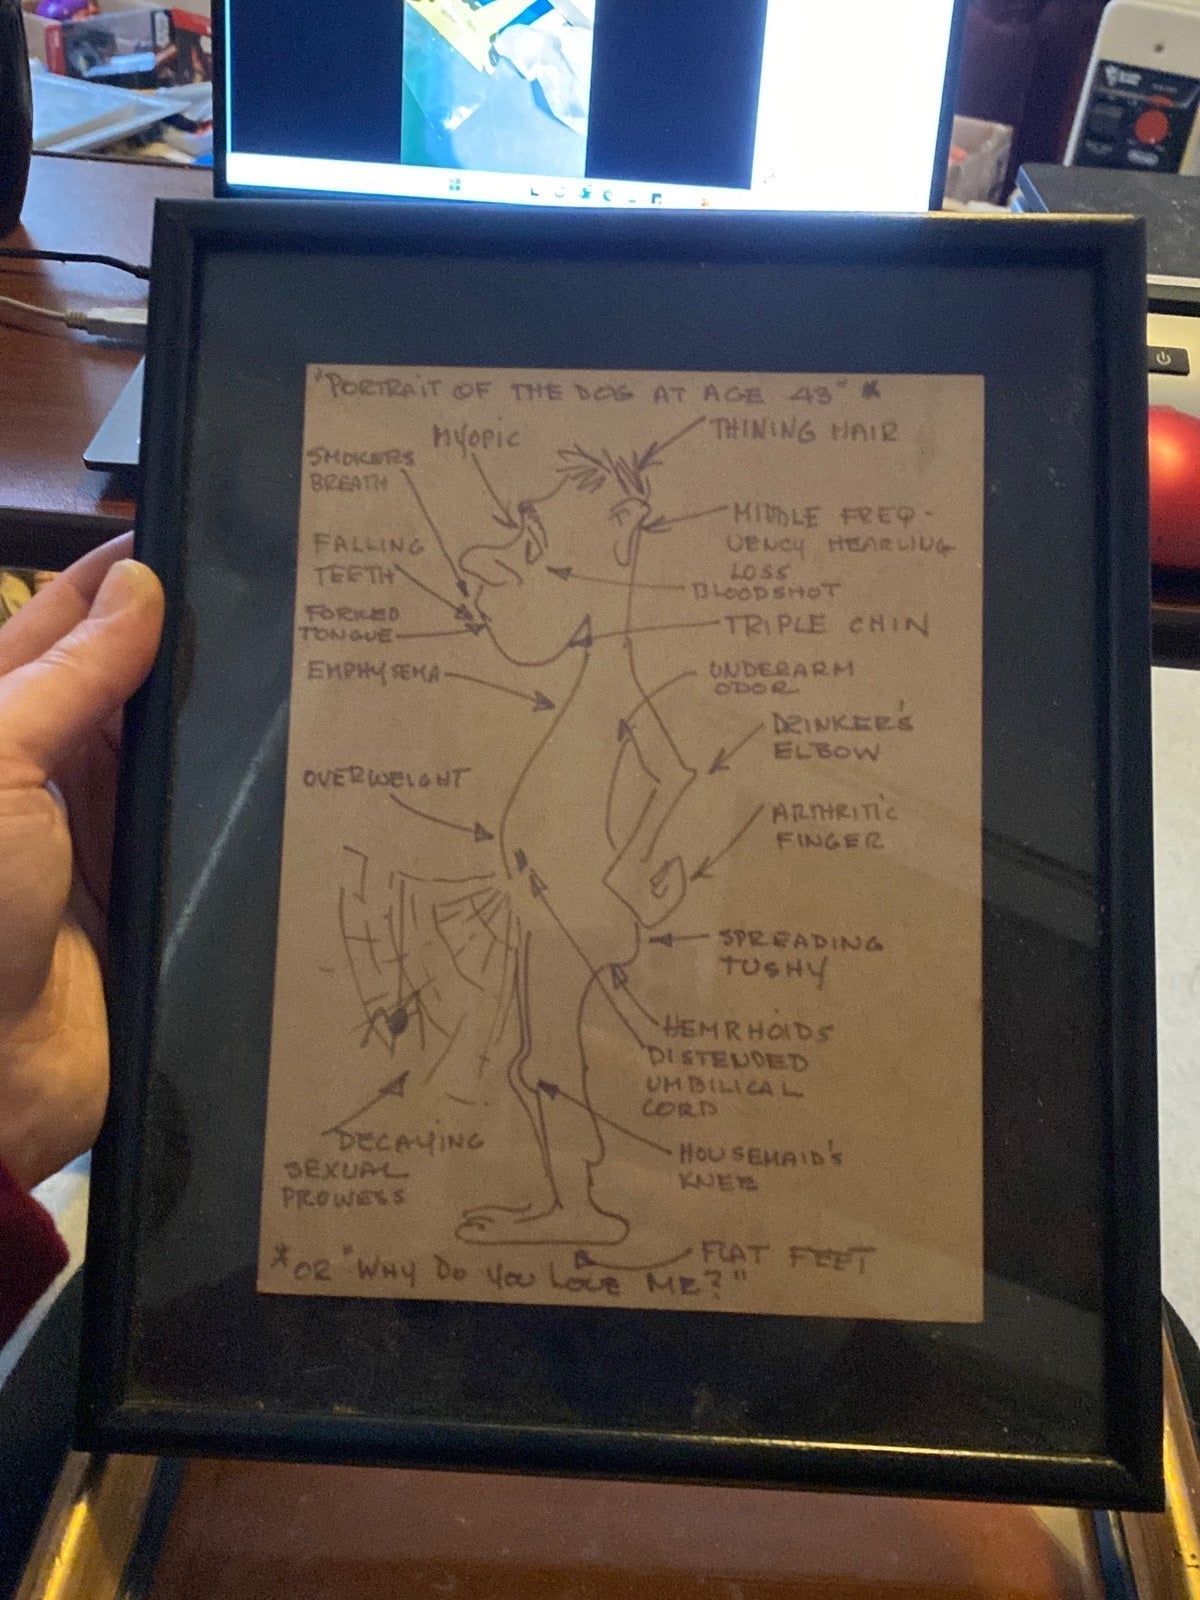 "PORTRAIT OF THE DOG AT AGE 43" *
MYOPIC
THINING HAIR
SMOKERS
BREATH
MIDDLE FREQ-
UENCY HEARLING
LOSS
FALLING
TEETH
BLOODSHOT
FORKED
TONGUE
TRIPLE CHIN
EMPHYSEMA
UNDERARM
ODOR
DRINKER'S
ELBOW
OVERWEIGHT
ARTHRITIC
FINGER
SPREADING
TUSHY
HEMRHOIDS
DISTENDED
UMBILICAL
CORD
DECAYING
SEXUAL
PROWESS
HOUSEMAID'S
KNEE
FLAT FEET
*OR "WHY DO YOU LOVE ME?"